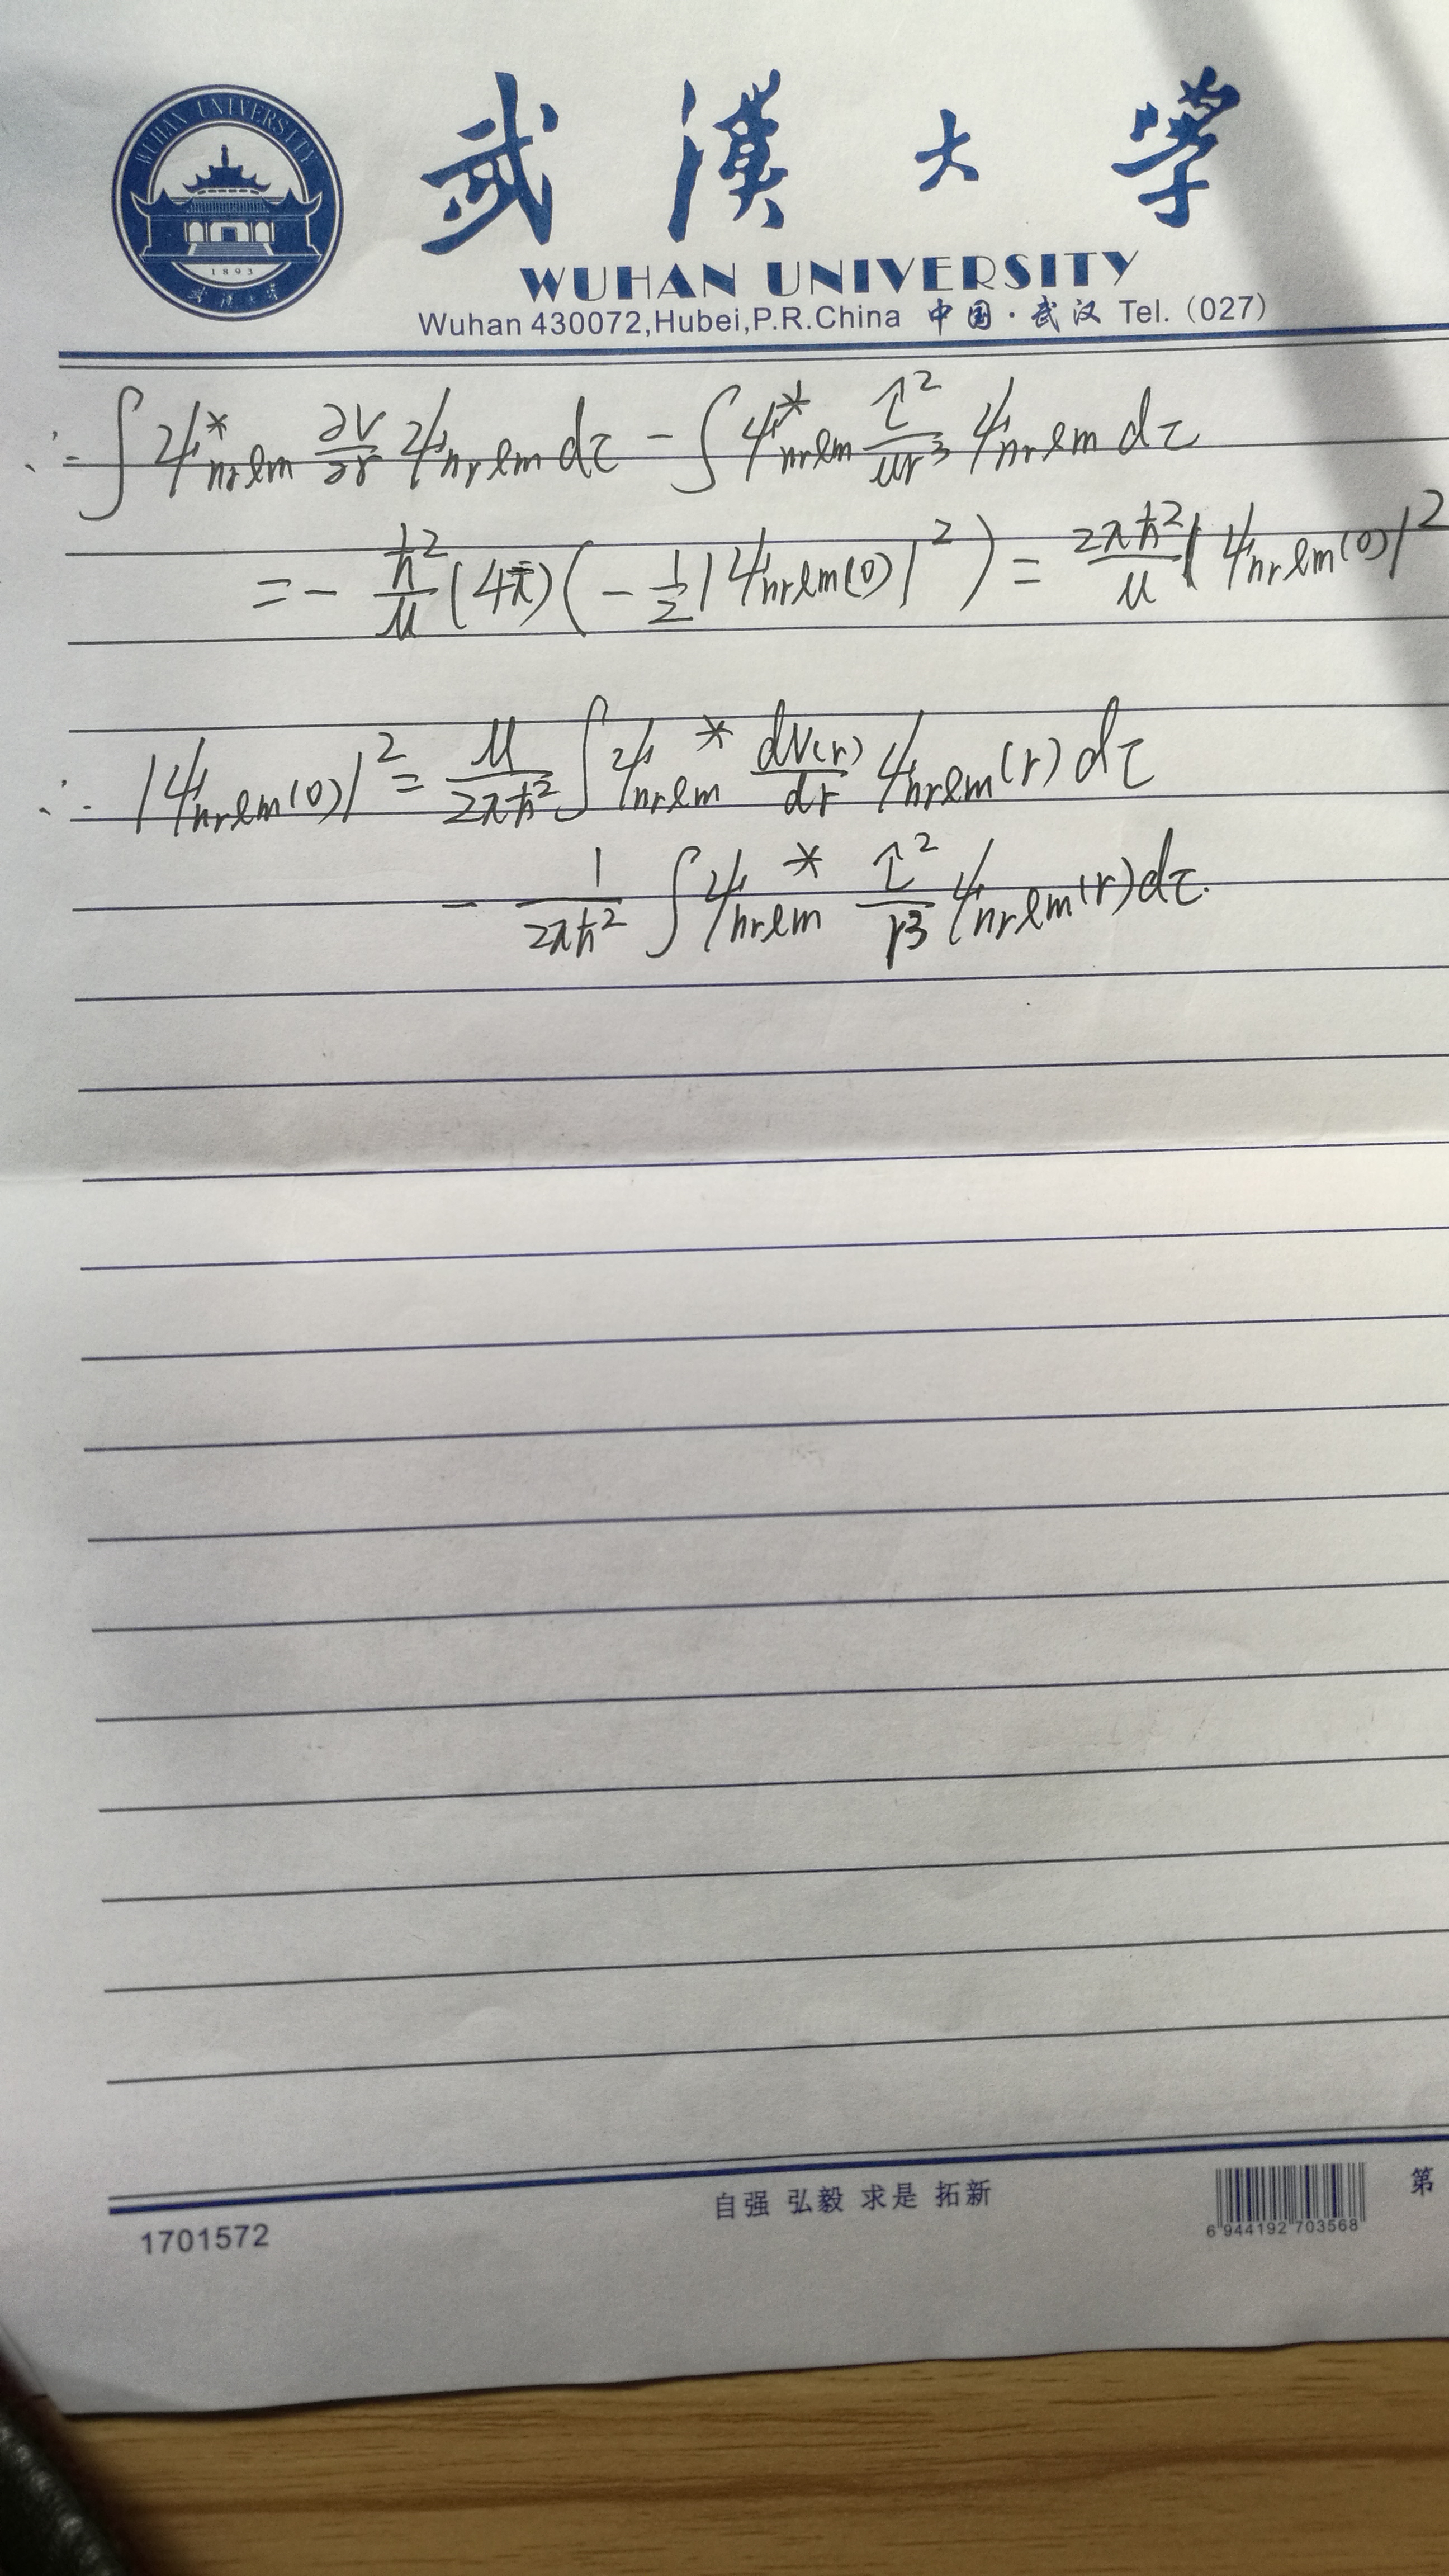 WUHAN UNIVERSITY
1893
武汉大学
武漢大学
WUHAN UNIVERSITY
Wuhan 430072,Hubei,P.R.China 中国·武汉 Tel.(027)
∴ ∫ψ*nrlm ∂V/∂r ψnrlm dτ − ∫ψ*nrlm l̂²/μr³ ψnrlm dτ
= − ħ²/μ (4π)(−½|ψnrlm(0)|²) = 2πħ²/μ |ψnrlm(0)|²
∴ |ψnrlm(0)|² = μ/2πħ² ∫ψnrlm* dV(r)/dr ψnrlm(r)dτ
− 1/2πħ² ∫ψnrlm* l̂²/r³ ψnrlm(r)dτ.
自强 弘毅 求是 拓新
1701572
6 944192 703568
第